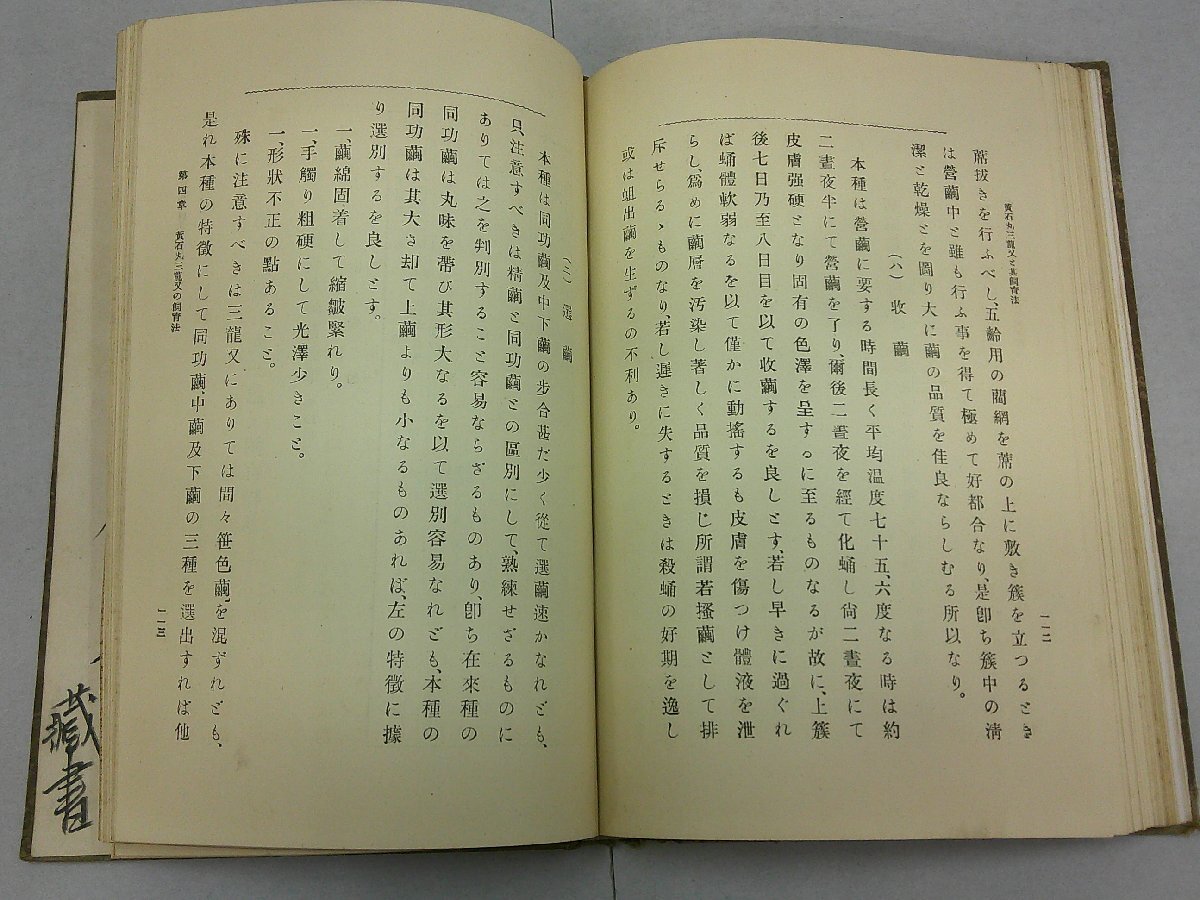 黃石丸三龍又と其飼育法
一一二
蓆拔きを行ふべし、五齡用の藺網を蓆の上に敷き簇を立つるとき
は營繭中と雖も行ふ事を得て極めて好都合なり、是卽ち簇中の淸
潔と乾燥とを圖り大に繭の品質を佳良ならしむる所以なり。
(八) 收繭
本種は營繭に要する時間長く平均溫度七十五、六度なる時は約
二晝夜半にて營繭を了り、爾後二晝夜を經て化蛹し尙二晝夜にて
皮膚强硬となり固有の色澤を呈するに至るものなるが故に、上簇
後七日乃至八日目を以て收繭するを良しとす、若し早きに過ぐれ
ば蛹體軟弱なるを以て僅かに動搖するも皮膚を傷つけ體液を泄
らし、爲めに繭層を汚染し著しく品質を損じ所謂若搔繭として排
斥せらるゝものなり、若し遲きに失するときは殺蛹の好期を逸し
或は蛆出繭を生ずるの不利あり。
選繭
本種は同功繭及中下繭の步合甚だ少く從て選繭速かなれども、
只、注意すべきは精繭と同功繭との區別にして、熟練せざるものに
ありては之を判別すること容易ならざるものあり、卽ち在來種の
同功繭は丸味を帶び其形大なるを以て選別容易なれども、本種の
同功繭は其大さ却て上繭よりも小なるものあれば、左の特徵に據
り選別するを良しとす。
一、繭綿固着して縮皺緊れり。
一、手觸り粗硬にして光澤少きこと。
一、形狀不正の點あること。
殊に注意すべきは三龍又にありては間々笹色繭を混ずれども、
是れ本種の特徵にして同功繭、中繭及下繭の三種を選出すれば他
第四章 黃石丸三龍又の飼育法
一一三
藏書